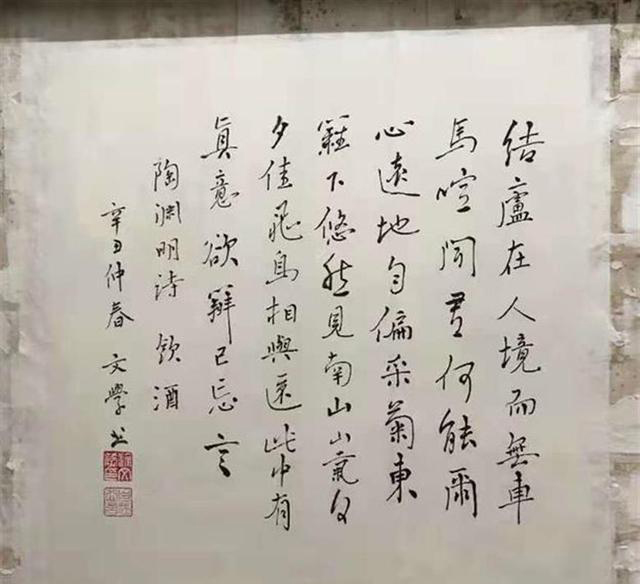 結廬在人境而無車
馬喧問君何能爾
心遠地自偏采菊東
籬下悠然見南山山氣日
夕佳飛鳥相與還此中有
眞意欲辯已忘言
陶渊明詩 飲酒
辛丑仲春 文學书